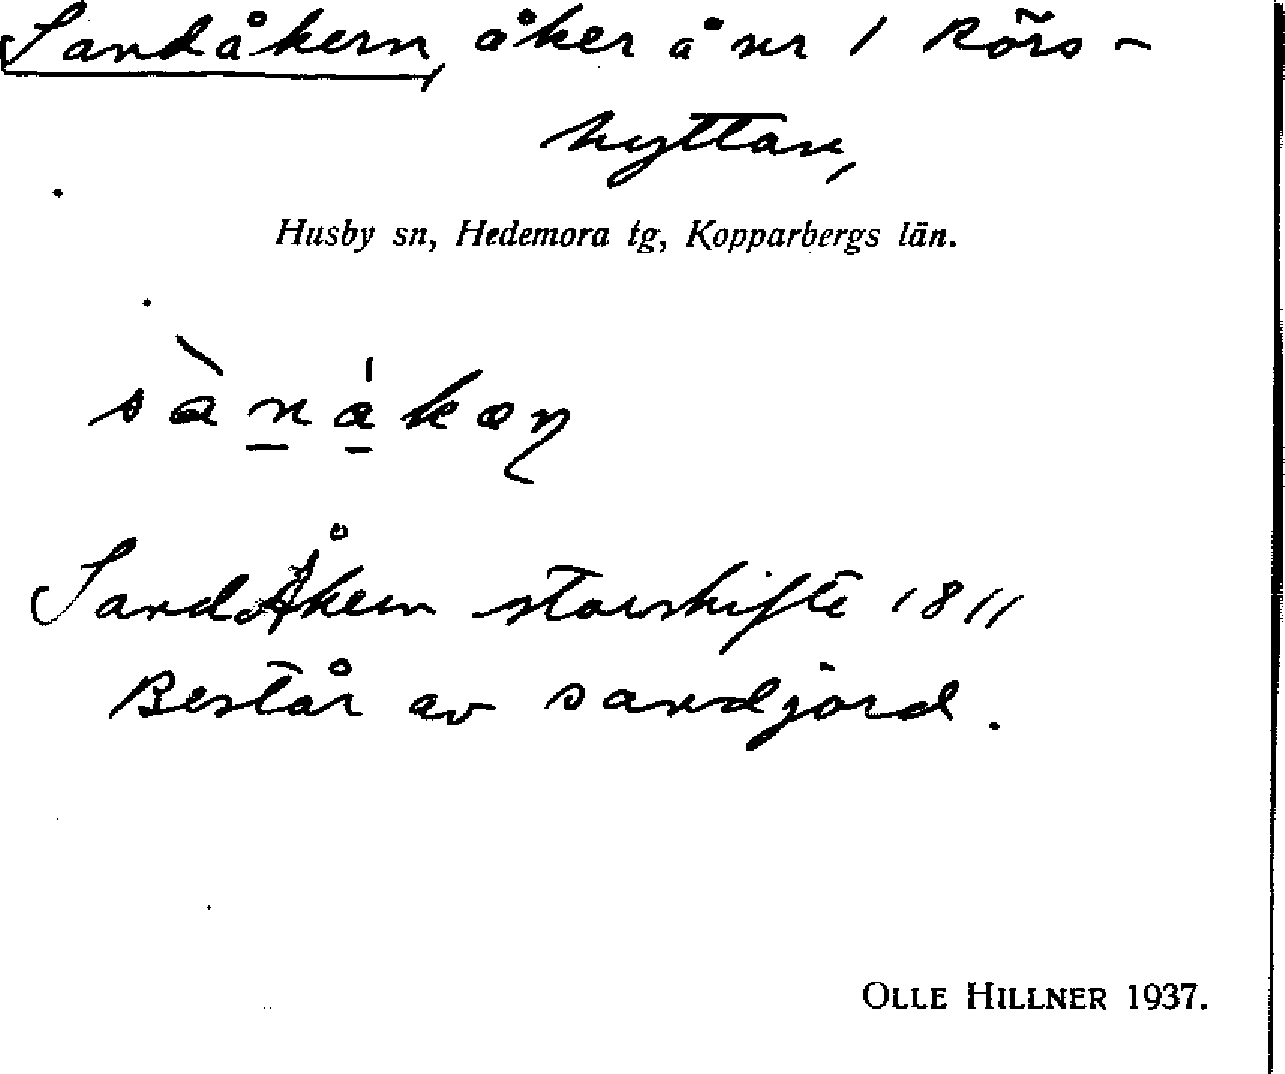 Sandåkern, åker å nr 1 Rörs-
hyttan,
Husby sn, Hedemora tg, Kopparbergs län.
SandÅkern storskifte 1811
Består av sandjord.
OLLE HILLNER 1937.